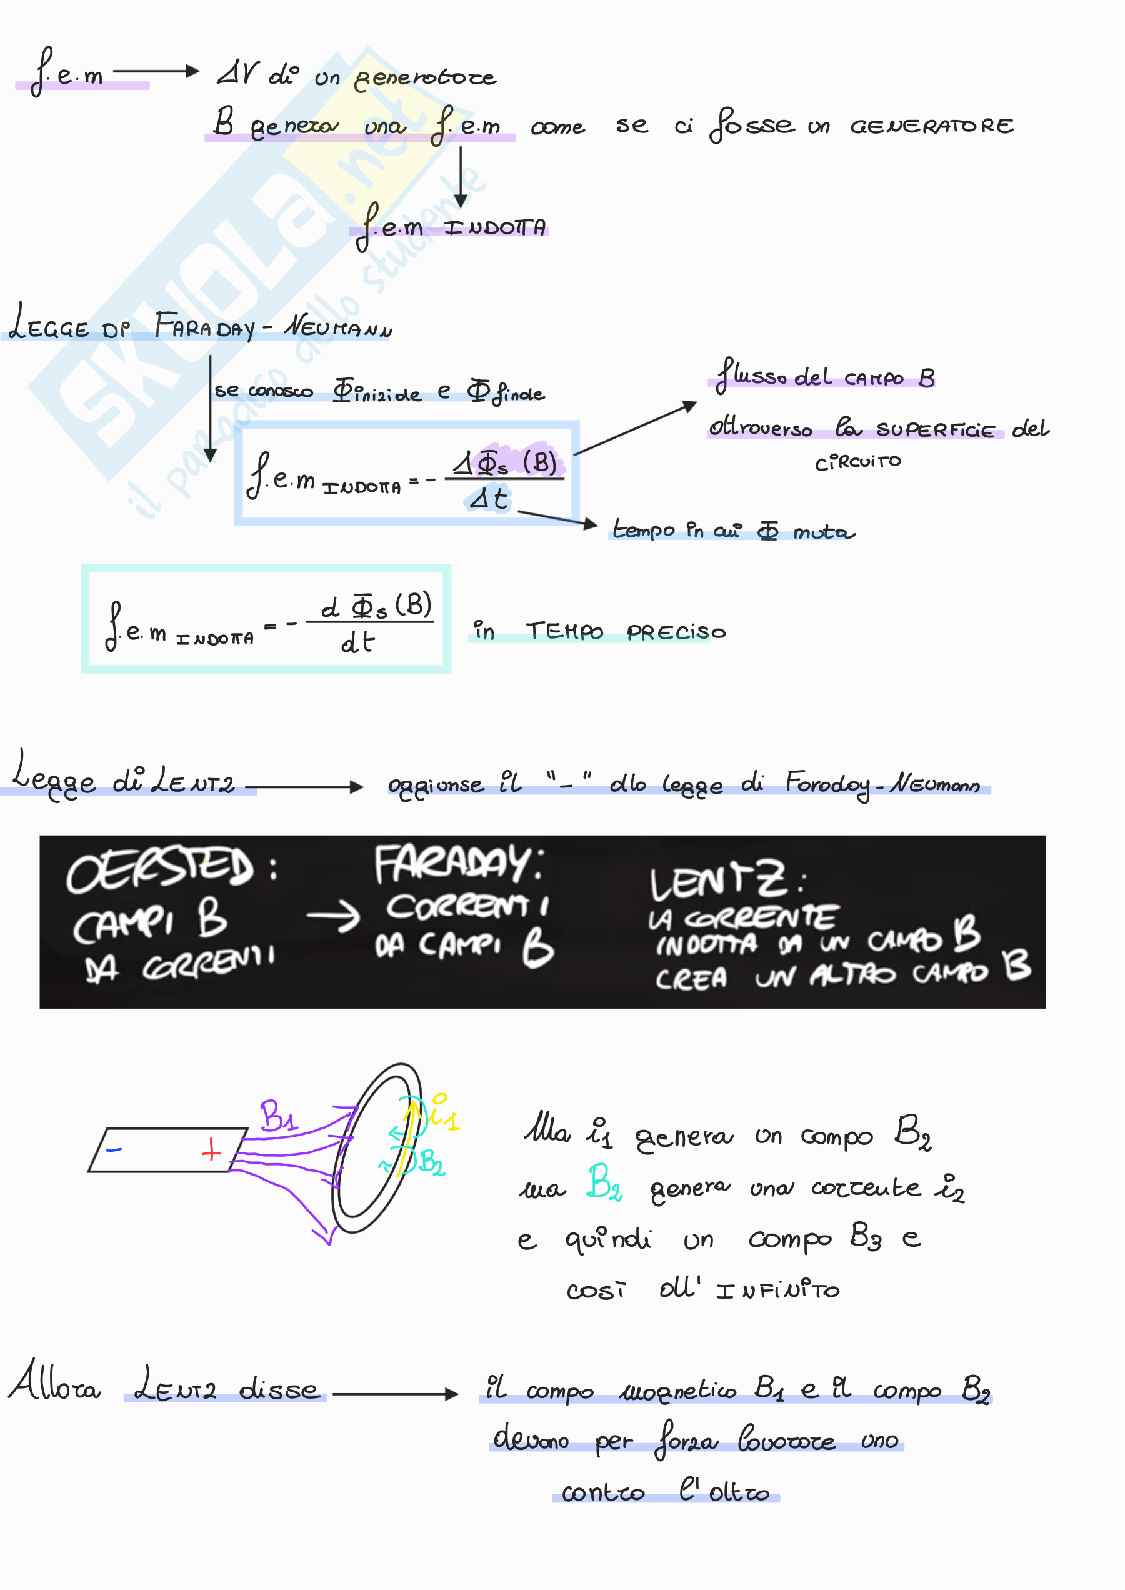 f.e.m → ΔV di un generatore
B genera una f.e.m come se ci fosse un GENERATORE
f.e.m INDOTTA
SKUOLA.net
il paradiso dello studente
LEGGE DI FARADAY-NEUMANN
se conosco Φiniziale e Φfinale
flusso del CAMPO B
attraverso la SUPERFICIE del
CIRCUITO
f.e.m INDOTTA = - ΔΦs (B) / Δt
tempo in cui Φ muta
f.e.m INDOTTA = - d Φs (B) / dt in TEMPO PRECISO
Legge di LENTZ → aggiunse il "-" alla legge di Faraday-Neumann
OERSTED:
CAMPI B
DA CORRENTI
→
FARADAY:
CORRENTI
DA CAMPI B
LENTZ:
LA CORRENTE
INDOTTA DA UN CAMPO B
CREA UN ALTRO CAMPO B
B1
i1
- +
B2
Ma i1 genera un campo B2
ma B2 genera una corrente i2
e quindi un campo B3 e
così all'INFINITO
Allora LENTZ disse → il campo magnetico B1 e il campo B2
devono per forza lavorare uno
contro l'altro